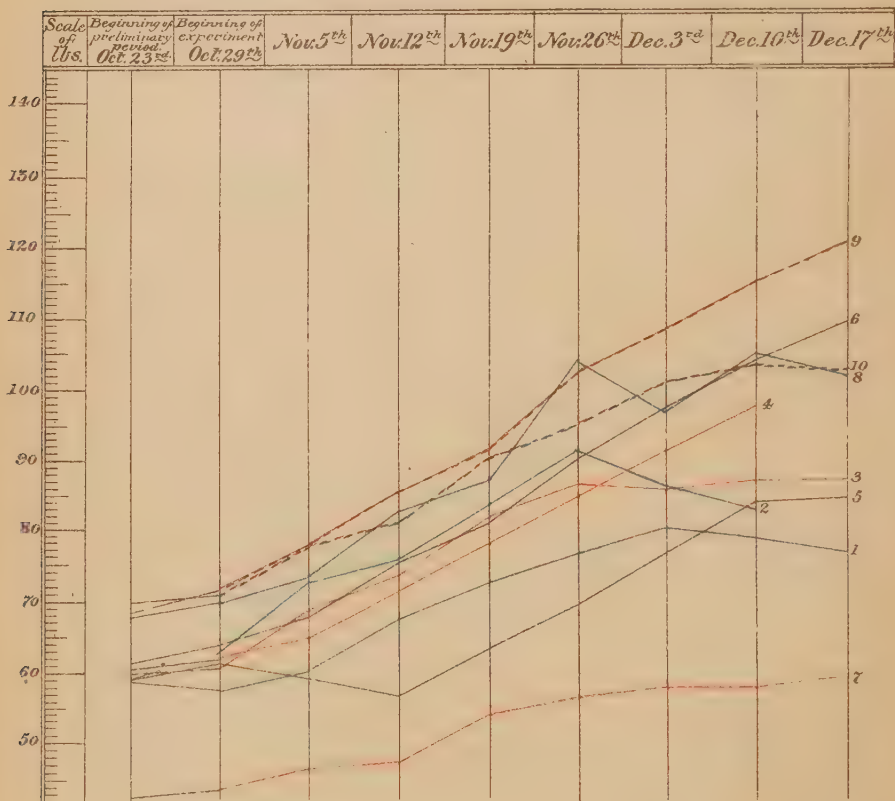 Scale of lbs.
Beginning of preliminary period. Oct. 23rd.
Beginning of experiment Oct. 29th
Nov. 5th
Nov. 12th
Nov. 19th
Nov. 26th
Dec. 3rd
Dec. 10th
Dec. 17th
140
130
120
9
110
6
10
100
8
4
90
3
5
80
2
1
70
60
7
50